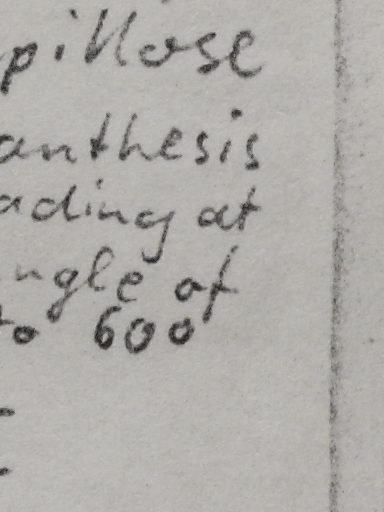 pillose
anthesis
ading at
ngle of
to 600